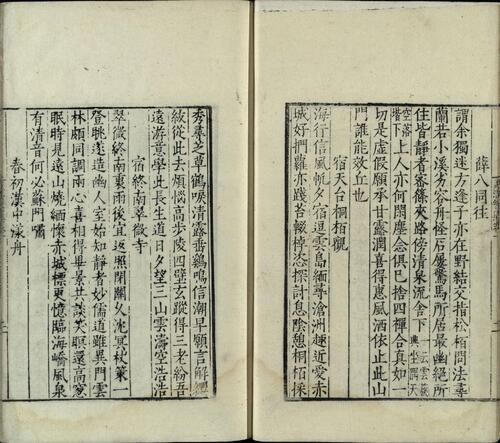 薛八同往
謂余獨迷方逢子亦在野結交指松栢問法尋
蘭若小溪劣容舟怪石屢驚馬所居最幽絕所
住皆靜者密篠夾路傍清泉流舎下一云雲簇興座隅天
空落堦下上人亦何閑塵念俱已捨四禪合真如一
切是虛假願承甘露潤喜得惠風洒依止此山
門誰能效丘也
宿天台桐栢觀
海行信風帆夕宿逗雲島緬尋滄洲趣近愛赤
城好捫蘿亦踐苔輟棹恣探討息陰憩桐栢採
秀尋芝草鶴唳清露垂鷄鳴信潮早願言解纓
紱從此去煩惱高步陵四壁玄蹤得三老紛吾
遠遊意學此長生道日夕望三山雲濤空浩浩
宿終南翠微寺
翠微終南裏雨後宜返照閉關久沈冥杖策一
登眺遂造幽人室始知靜者妙儒道雖異門雲
林頗同調兩心喜相得畢景共談笑暝還高窻
眠時見遠山燒緬懷赤城標更憶臨海嶠風泉
有清音何必蘇門嘯
春初漢中漾舟